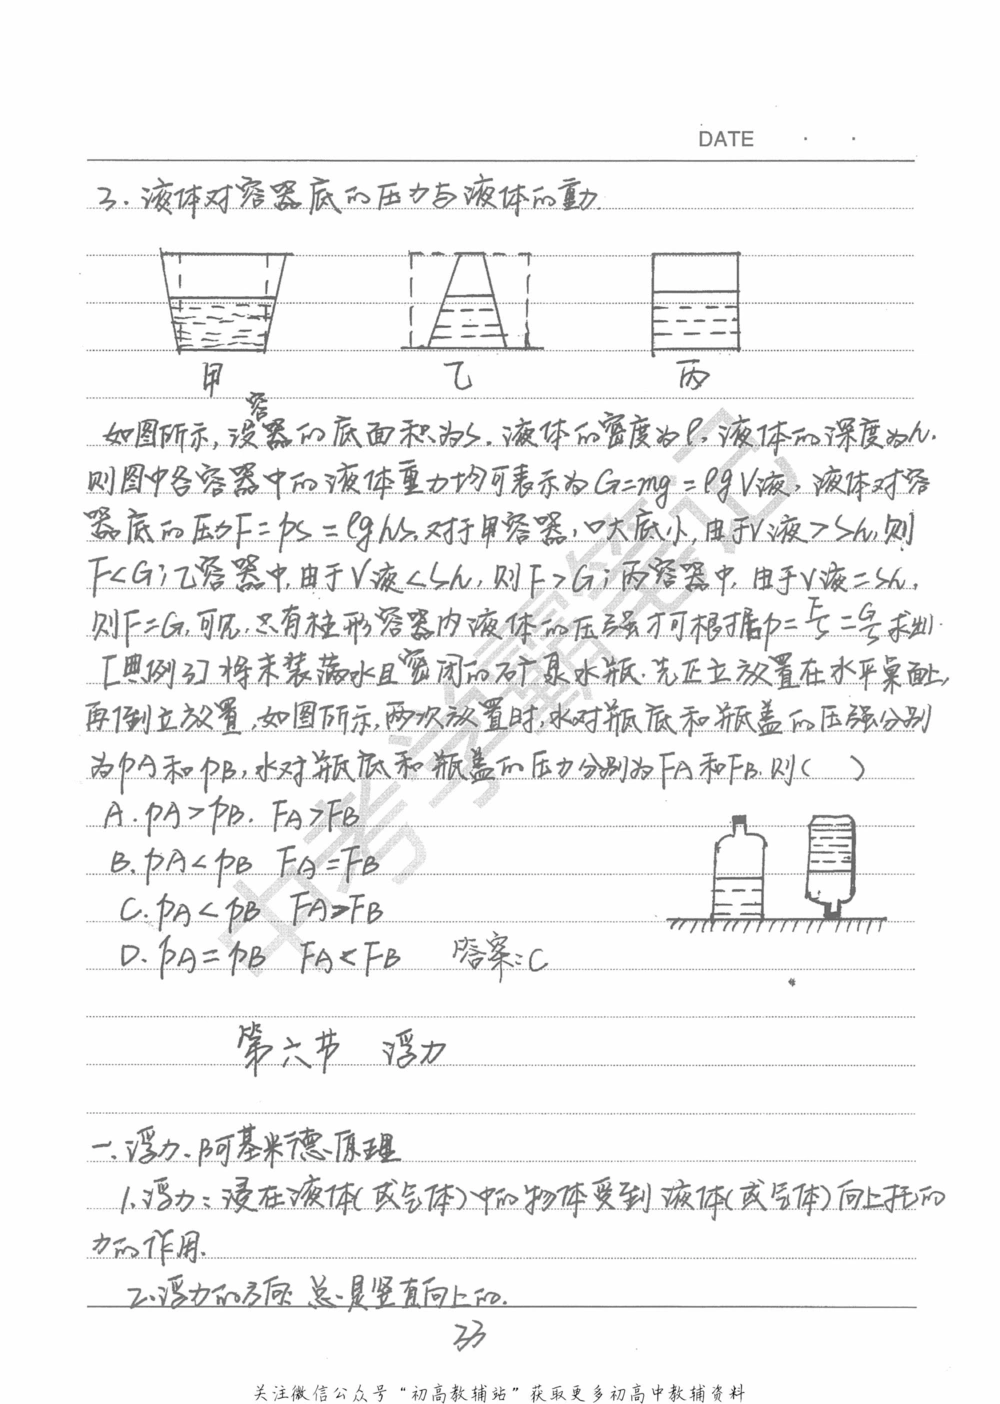 DATE · ·
3.液体对容器底的压力与液体的重力.
甲 乙 丙
如图所示,设容器的底面积为S.液体的密度为ρ,液体的深度为h.
则图中各容器中的液体重力均可表示为G=mg=ρgV液,液体对容
器底的压力F=pS=ρghS,对于甲容器,口大底小,由于V液>Sh,则
F<G;乙容器中,由于V液<Sh,则F>G;丙容器中,由于V液=Sh,
则F=G,可见,只有柱形容器内液体的压强才可根据p=F/S=G/S求出.
[典例3]将未装满水且密闭的矿泉水瓶.先正立放置在水平桌面上,
再倒立放置,如图所示,两次放置时,水对瓶底和瓶盖的压强分别
为pA和pB,水对瓶底和瓶盖的压力分别为FA和FB.则( )
A.pA>pB. FA>FB
B.pA<pB FA=FB
C.pA<pB FA>FB
D.pA=pB FA<FB 答案:C
第六节 浮力
一.浮力、阿基米德原理
1.浮力:浸在液体(或气体)中的物体受到液体(或气体)向上托的
力的作用.
2.浮力的方向 总是竖直向上的.
33
关注微信公众号“初高教辅站”获取更多初高中教辅资料
中考学霸笔记